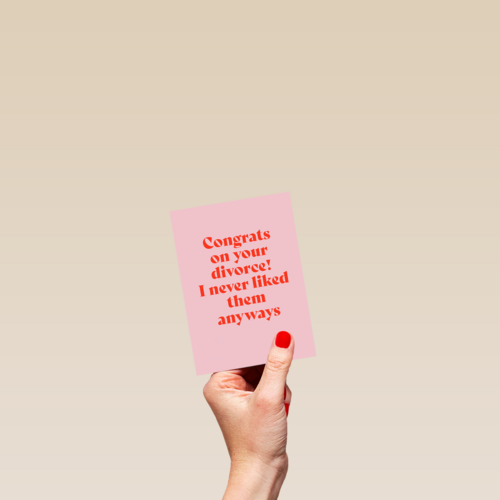 Congrats
on your
divorce!
I never liked
them
anyways